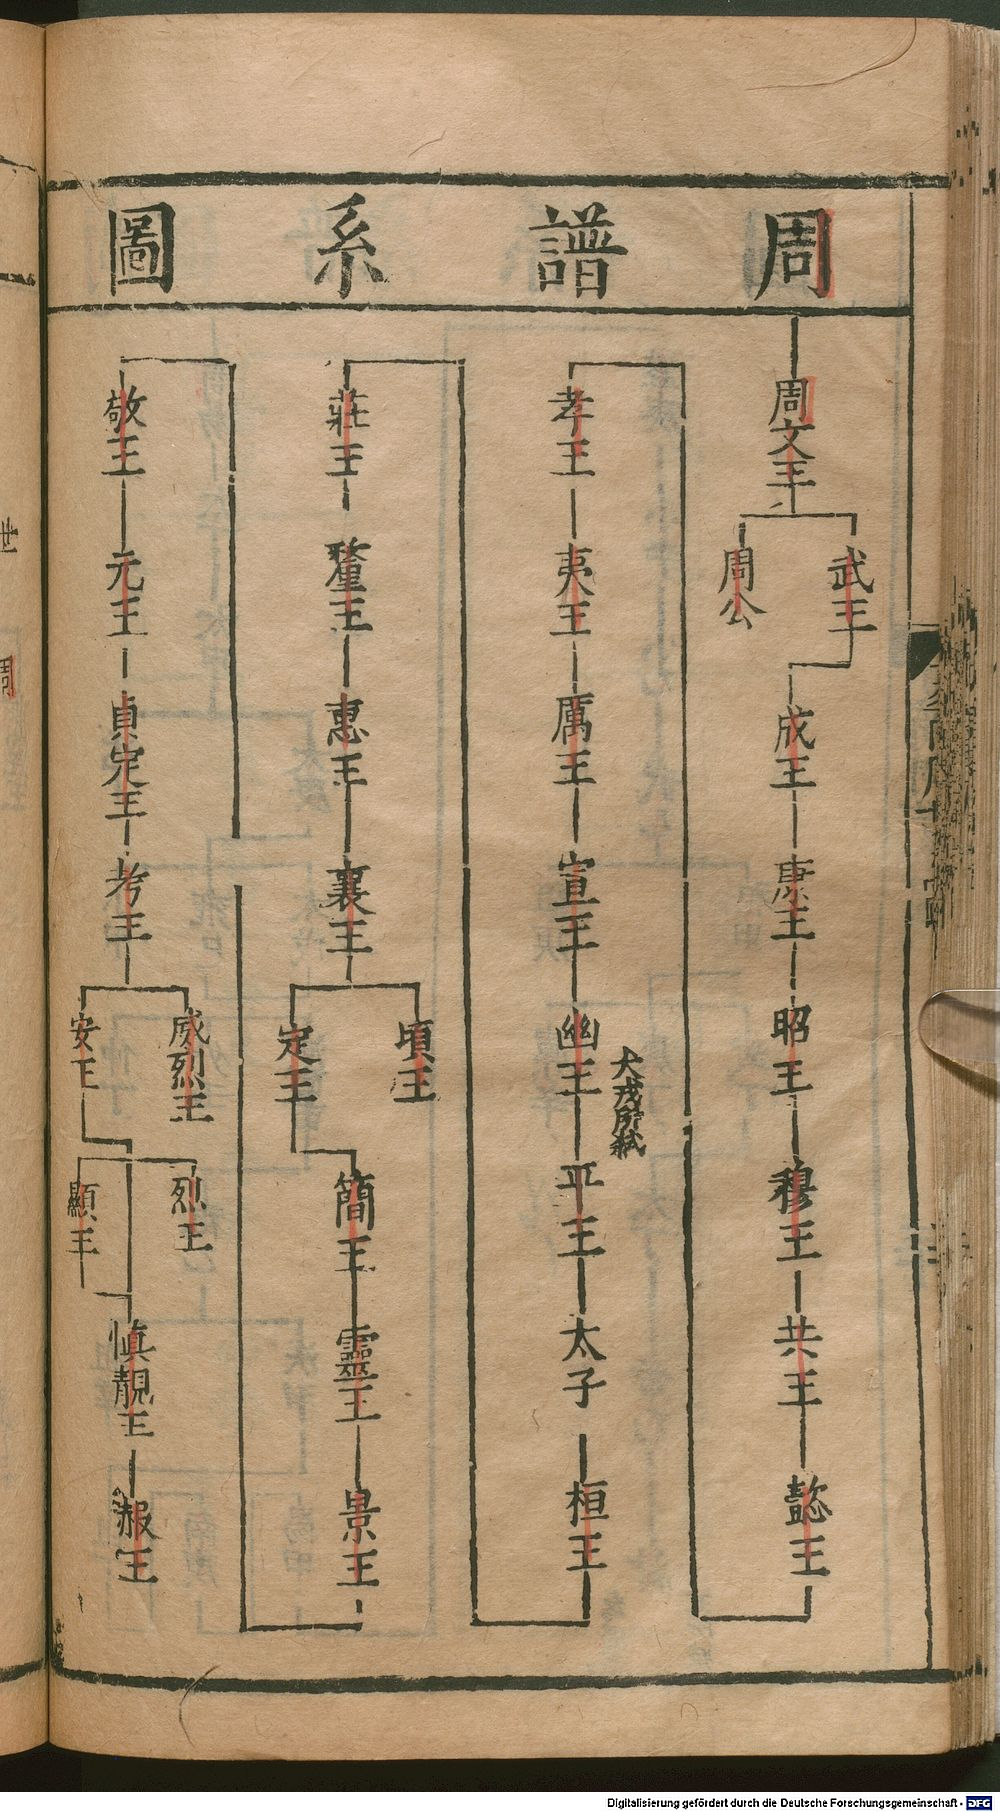 周譜系圖
周文王
武王
周公
成王
康王
昭王
穆王
共王
懿王
孝王
夷王
厲王
宣王
幽王
犬戎所弒
平王
太子
桓王
莊王
釐王
惠王
襄王
頃王
定王
簡王
靈王
景王
敬王
元王
貞定王
考王
威烈王
安王
烈王
顯王
慎靚王
赧王
世
周
Digitalisierung gefördert durch die Deutsche Forschungsgemeinschaft - DFG